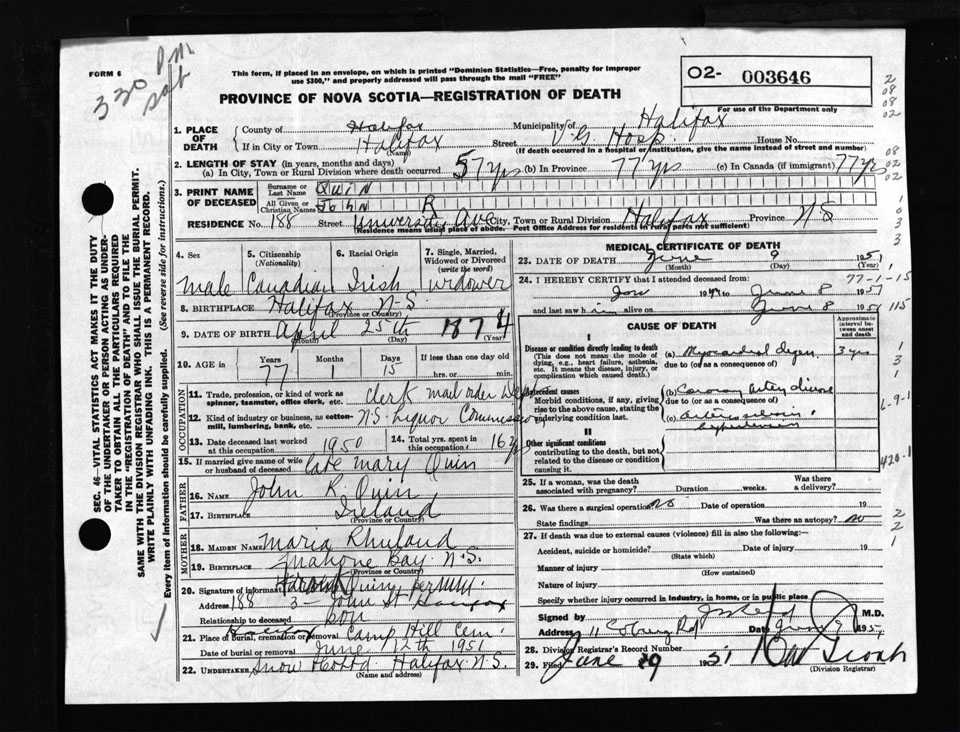 330 p.m.
sat
FORM 6
This form, if placed in an envelope, on which is printed "Dominion Statistics—Free, penalty for improper
use $300," and properly addressed will pass through the mail "FREE"
O2- 003646
PROVINCE OF NOVA SCOTIA—REGISTRATION OF DEATH
For use of the Department only
1. PLACE OF DEATH
County of Halifax Municipality of Halifax
If in City or Town Halifax Street V. G. Hosp. House No.
(Name) (If death occurred in a hospital or institution, give the name instead of street and number)
2. LENGTH OF STAY (in years, months and days)
(a) In City, Town or Rural Division where death occurred 57 yrs (b) In Province 77 yrs (c) In Canada (if immigrant) 77 yrs
3. PRINT NAME OF DECEASED
Surname or Last Name Quin
All Given or Christian Names John R
RESIDENCE No. 188 Street University Ave City, Town or Rural Division Halifax Province N S
(Residence means usual place of abode. Post Office Address for residents in rural parts not sufficient)
4. Sex
5. Citizenship (Nationality)
6. Racial Origin
7. Single, Married, Widowed or Divorced (write the word)
male Canadian Irish widower
8. BIRTHPLACE Halifax N-S.
(Province or Country)
9. DATE OF BIRTH April 25th 1874
(Month) (Day) (Year)
10. AGE in Years Months Days If less than one day old
77 1 15 hrs. or min.
OCCUPATION
11. Trade, profession, or kind of work as spinner, teamster, office clerk, etc. Clerk mail order
12. Kind of industry or business, as cotton-mill, lumbering, bank, etc. N.S. Liquor
13. Date deceased last worked at this occupation 1950
14. Total yrs. spent in this occupation 16 yrs
15. If married give name of wife or husband of deceased late Mary Quin
FATHER
16. NAME John K. Quin
17. BIRTHPLACE Ireland
(Province or Country)
MOTHER
18. MAIDEN NAME Maria Rhuland
19. BIRTHPLACE Mahone Bay N.S.
(Province or Country)
20. Signature of informant Quin per
Address 188 3- John St Halifax
Relationship to deceased son
21. Place of burial, cremation or removal Halifax Camp Hill Cem.
Date of burial or removal June 12th 1951
22. UNDERTAKER Snow & Co Ltd. Halifax N.S.
(Name and address)
MEDICAL CERTIFICATE OF DEATH
23. DATE OF DEATH June 9 1951
(Month) (Day) (Year)
24. I HEREBY CERTIFY that I attended deceased from: 77-1-15
19 to June 8 1951
and last saw him alive on June 8 1951 115
CAUSE OF DEATH
Approximate interval between onset and death
I
Disease or condition directly leading to death
(This does not mean the mode of dying, e.g., heart failure, asthenia, etc. It means the disease, injury, or complication which caused death.)
(a) Myocardial 3 yrs
due to (or as a consequence of)
Antecedent causes
Morbid conditions, if any, giving rise to the above cause, stating the underlying condition last.
(b) Coronary artery disease
due to (or as a consequence of)
(c)
II
Other significant conditions
contributing to the death, but not related to the disease or condition causing it.
6-9-1
420-1
25. If a woman, was the death associated with pregnancy? Duration weeks. Was there a delivery?
26. Was there a surgical operation? no Date of operation 19
State findings Was there an autopsy? no
27. If death was due to external causes (violence) fill in also the following:—
Accident, suicide or homicide? Date of injury 19
(State which)
Manner of injury
(How sustained)
Nature of injury
Specify whether injury occurred in Industry, in home, or in public place
Signed by M.D.
Address Date 195
28. Division Registrar's Record Number
29. Filed June 9 1951
(Division Registrar)
SEC. 46—VITAL STATISTICS ACT MAKES IT THE DUTY
OF THE UNDERTAKER OR PERSON ACTING AS UNDER-
TAKER TO OBTAIN ALL THE PARTICULARS REQUIRED
IN THE "REGISTRATION OF DEATH" AND TO FILE THE
SAME WITH THE DIVISION REGISTRAR WHO SHALL ISSUE THE BURIAL PERMIT.
WRITE PLAINLY WITH UNFADING INK. THIS IS A PERMANENT RECORD.
Every item of information should be carefully supplied. (See reverse side for instructions.)
2
08
08
02
08
02
1
0
3
3
1
3
1
2
2
1